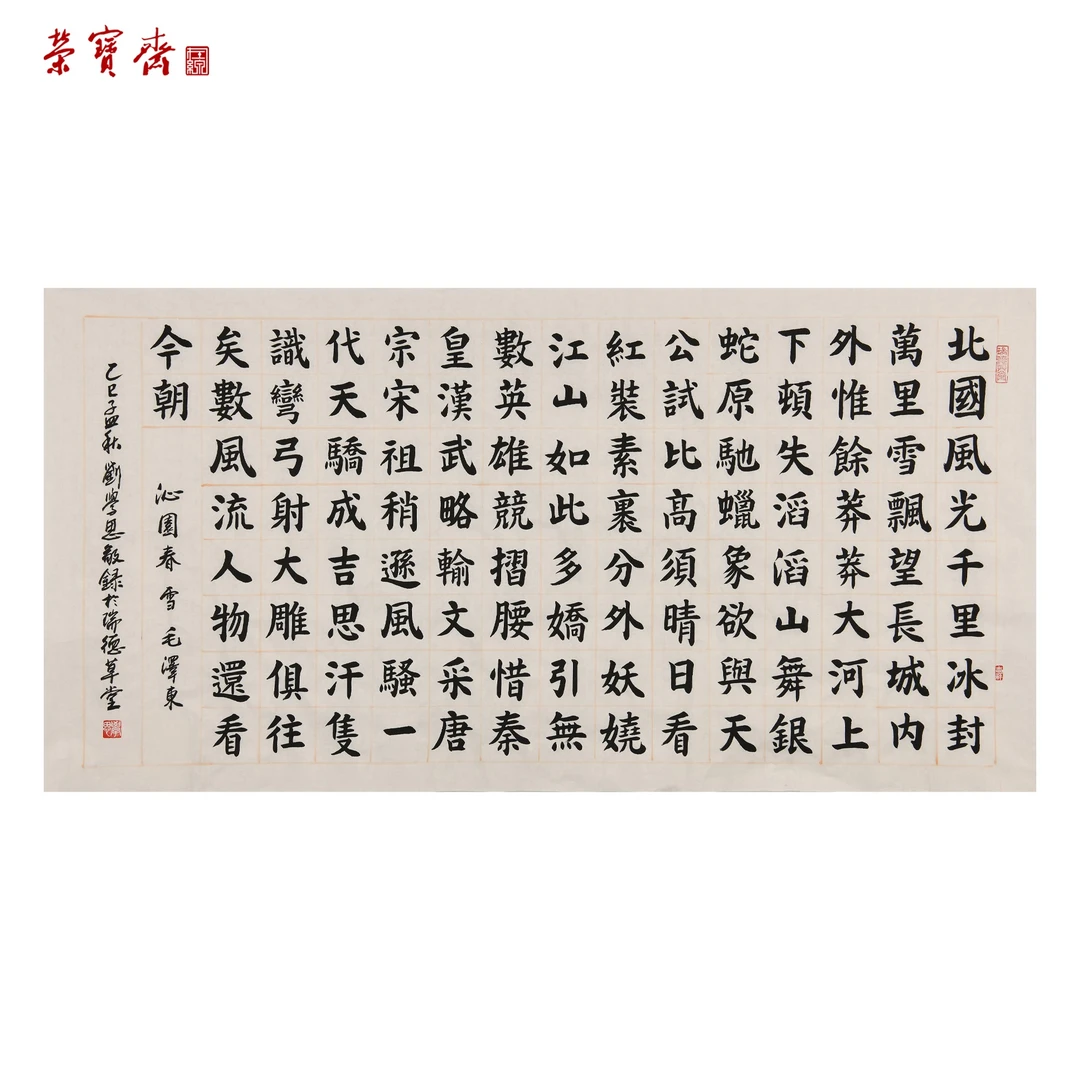 榮寶齋
北國風光千里冰封
萬里雪飄望長城内
外惟餘莽莽大河上
下頓失滔滔山舞銀
蛇原馳蠟象欲與天
公試比高須晴日看
紅裝素裹分外妖嬈
江山如此多嬌引無
數英雄競摺腰惜秦
皇漢武略輸文采唐
宗宋祖稍遜風騷一
代天驕成吉思汗隻
識彎弓射大雕俱往
矣數風流人物還看
今朝
沁園春 雪 毛澤東
乙巳孟秋 劉學思敬録於瑞德草堂